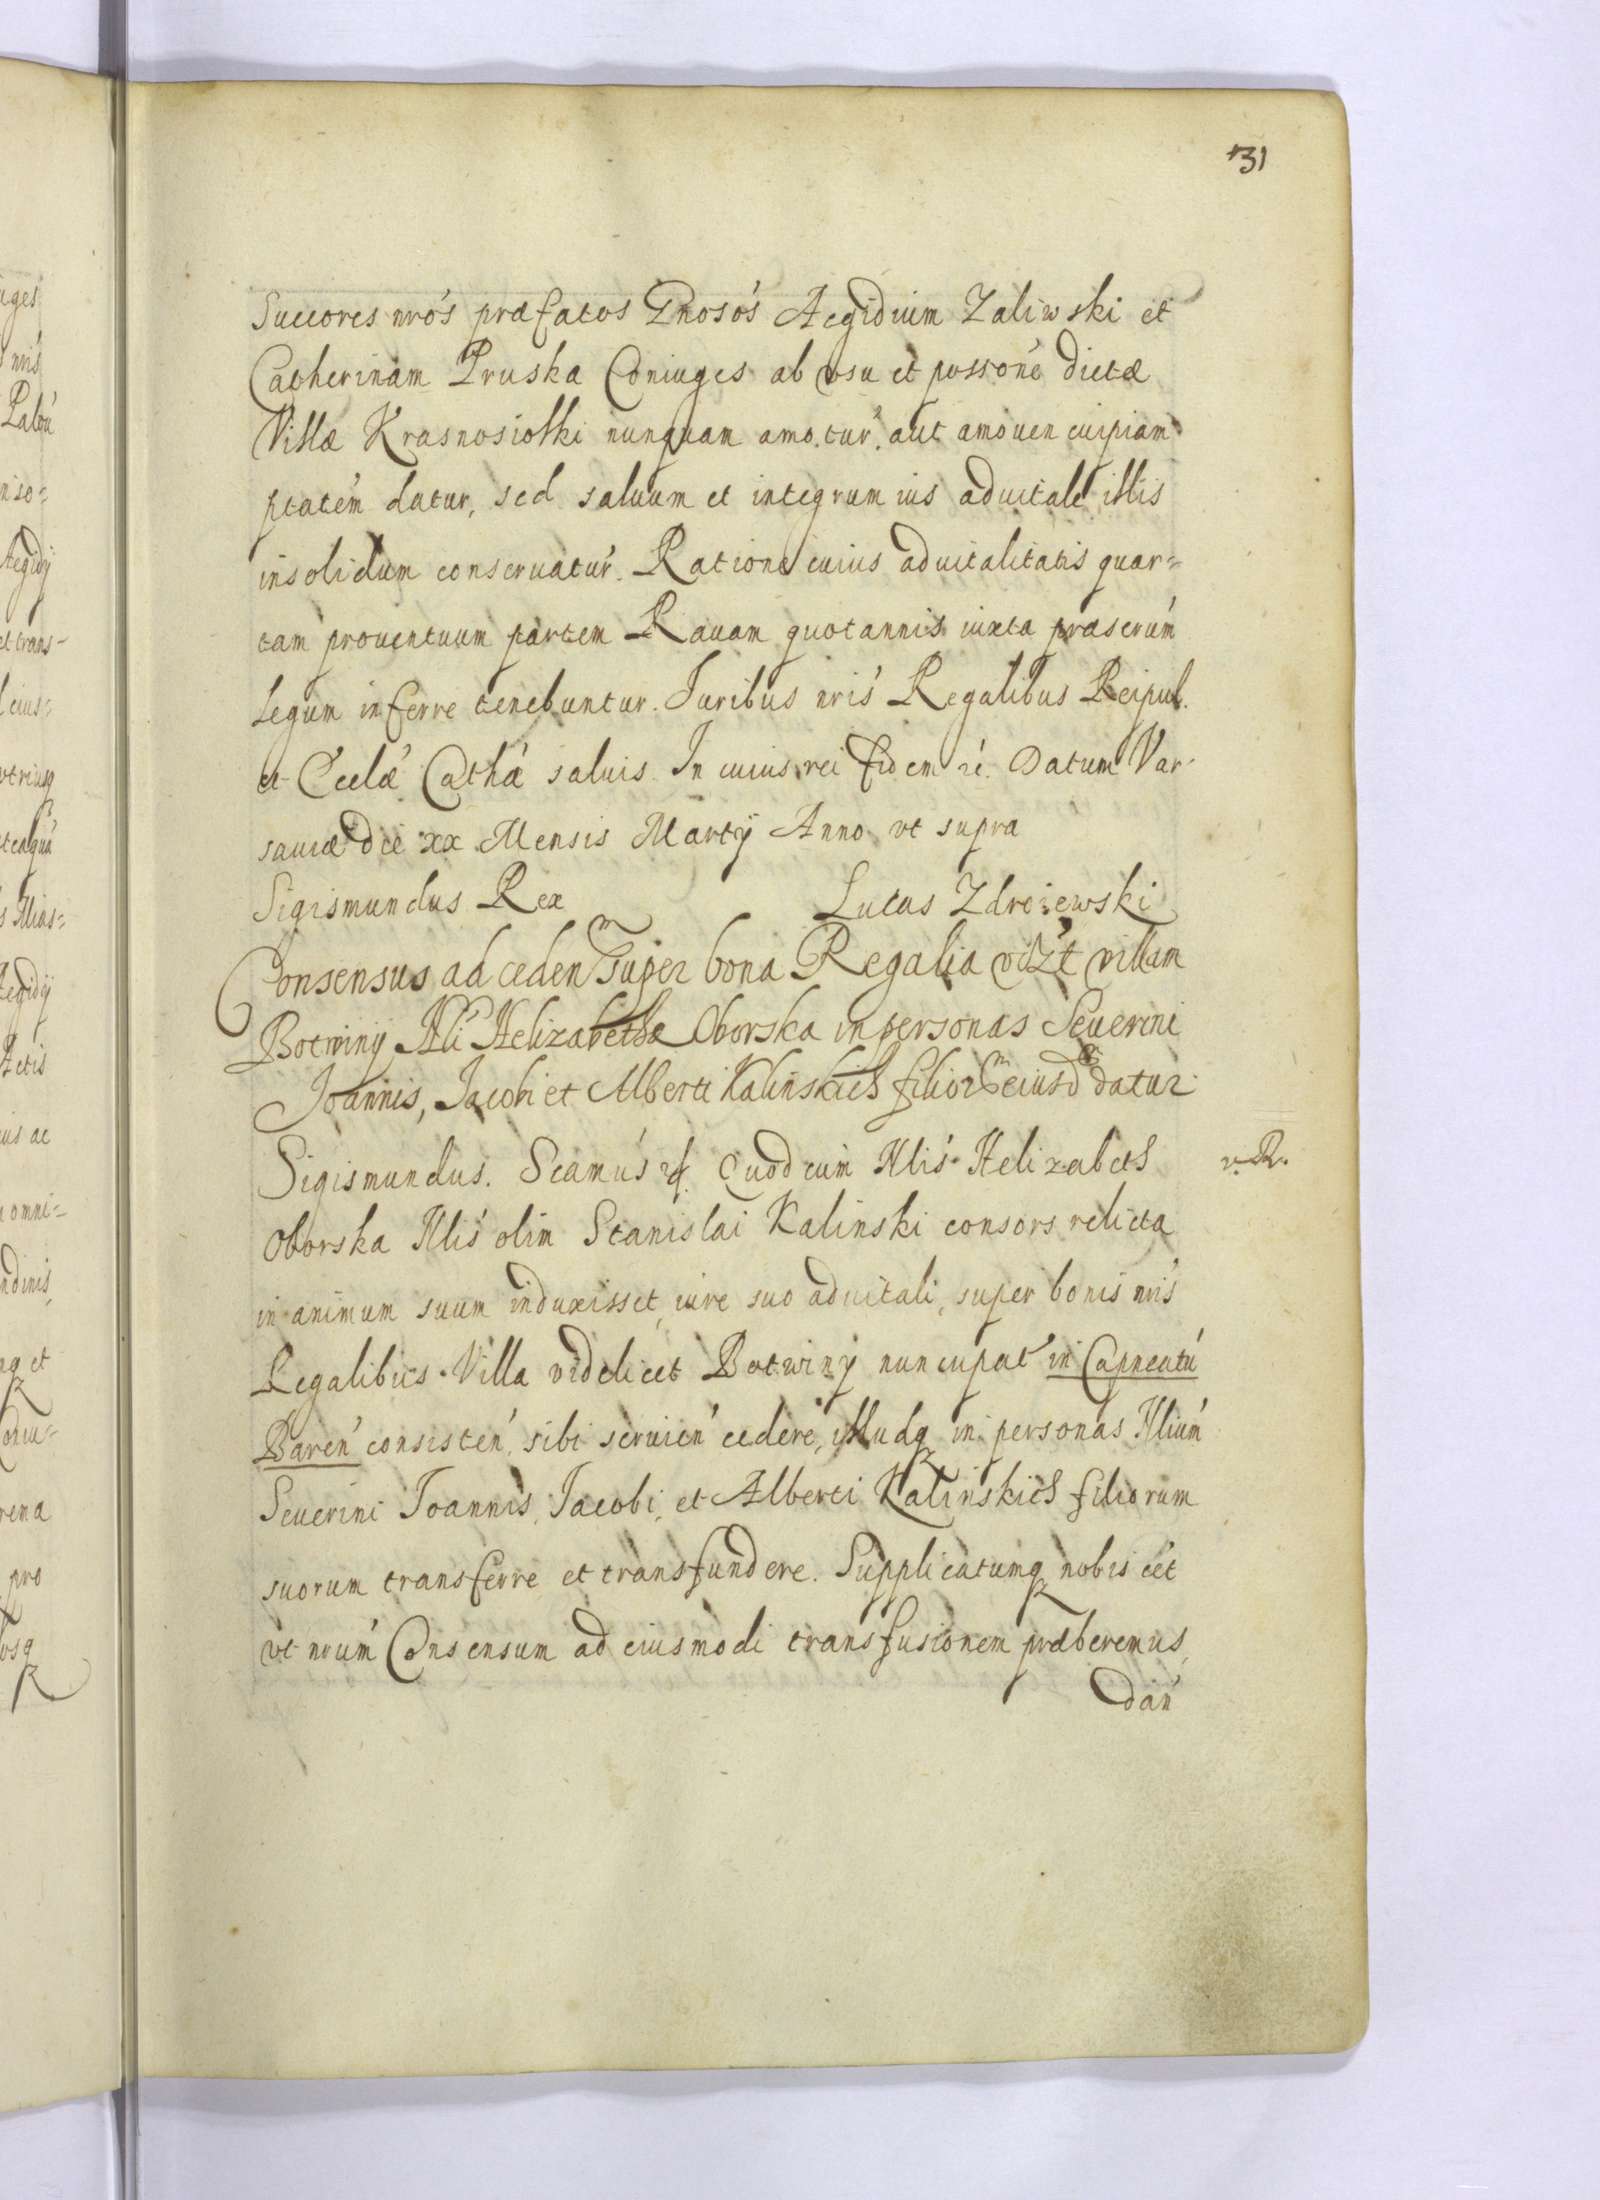 131
Succores nrós præfatos Gnosós Aegidium Zaliwski et
Catherinam Pruska Coniuges ab vsu et possoné dictæ
Villæ Krasnosiołki nunquam amo.tur. aut amouen cuipiam
ptatém datur, sed saluum et integrum ius aduitale illis
insolidum conseruatur. Ratione cuius aduitalitatis quar=
tam prouentuum partem Rauam quotannis iuxta præscrúm
legum inferre tenebuntur. Juribus nris Regalibus Reipub.
et Ecclæ Cathæ saluis. In cuius rei fidem Datum Var-
sauiæ die xx Mensis Martij Anno vt supra
Sigismundus Rex Lucas Zdroiewski
Consensus ad ceden super bona Regalia vizt villam
Botwiny Nli Helizabethæ Oborska in personas Seuerini
Joannis, Jacobi et Alberti Kalinskich filior eiusd datur
Sigismundus. Scamús Quod cum Nlis Helizabeth
v. R.
Oborska Nlis olim Stanislai Kalinski consors relicta
in animum suum induxisset, iure suo aduitali, super bonis nris
Regalibus. Villa videlicet Botwiny nuncupat in Capneatú
Baren consisten sibi seruien cedere, illudq in personas Nlium
Seuerini Joannis, Jacobi, et Alberti Kalinskich filiorum
suorum transferre et transfundere. Supplicatumq nobis eét
vt nrum Consensum ad eiusmodi transfusionem præberemus,
dan